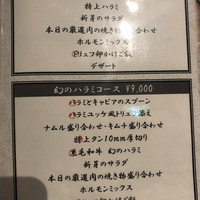 特上ハラミ
新芽のサラダ
本日の厳選肉の焼き物盛り合わせ
ホルモンミックス
トリュフ卵かけご飯
デザート
幻のハラミコース ¥9,000
ハラミとキャビアのスプーン
ハラミユッケ風トリュフ添え
ナムル盛り合わせ・キムチ盛り合わせ
特上タン10回厚切り
黒毛和牛 幻のハラミ
新芽のサラダ
本日の厳選肉の焼き物盛り合わせ
ホルモンミックス